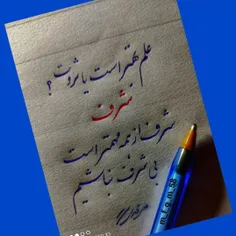 علم بهتر است یا ثروت ؟
شرف
شرف از همه مهمتر است
بی شرف نباشیم